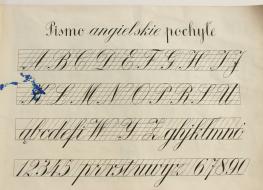 Pismo angielskie pochyłe
A B C D E F G H I J
K L M N O P R S U
ąbcdefi W Y Z ghijklmnó
12345 prrstuwyz 67890